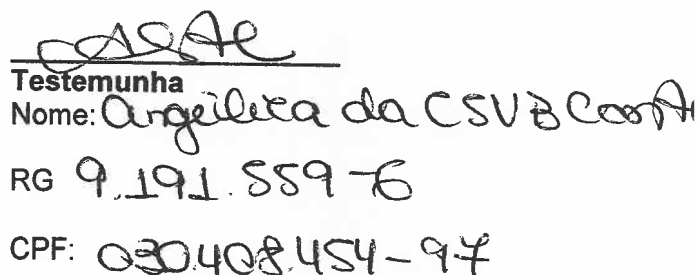 Testemunha
Nome: Angeilica da CSVB
RG 9.191.559-6
CPF: 030.408.454-97